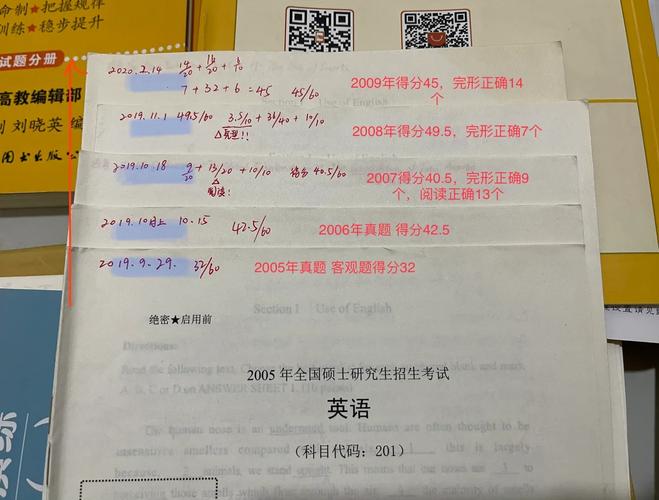 命制★把握规律
训练★稳步提升
试题分册
高教编辑部
刘晓英 编
图书出版
2020.2.14 14/20 + 16/20 + /10
7+32+6=45 45/60
2009年得分45，完形正确14个
Use of English
2019.11.1 49.5/60 3.5/10 + 36/40 + 10/10
△真题!!
2008年得分49.5，完形正确7个
2019.10.18 9/20 + 13/20 + 10/10 得分 40.5/60
△阅读!
2007年得分40.5，完形正确9个，阅读正确13个
2019.10月上 10.15 42.5/60
2006年真题 得分42.5
2019.9.29. 32/60
2005年真题 客观题得分32
Section I Use of English
绝密★启用前
Directions:
2005 年全国硕士研究生招生考试
英语
（科目代码：201）
The human nose is an underrated tool. Humans are often thought to be
insensitive smellers compared 1 this is largely
because, 2 animals, we stand upright. This means that our noses are 3 to